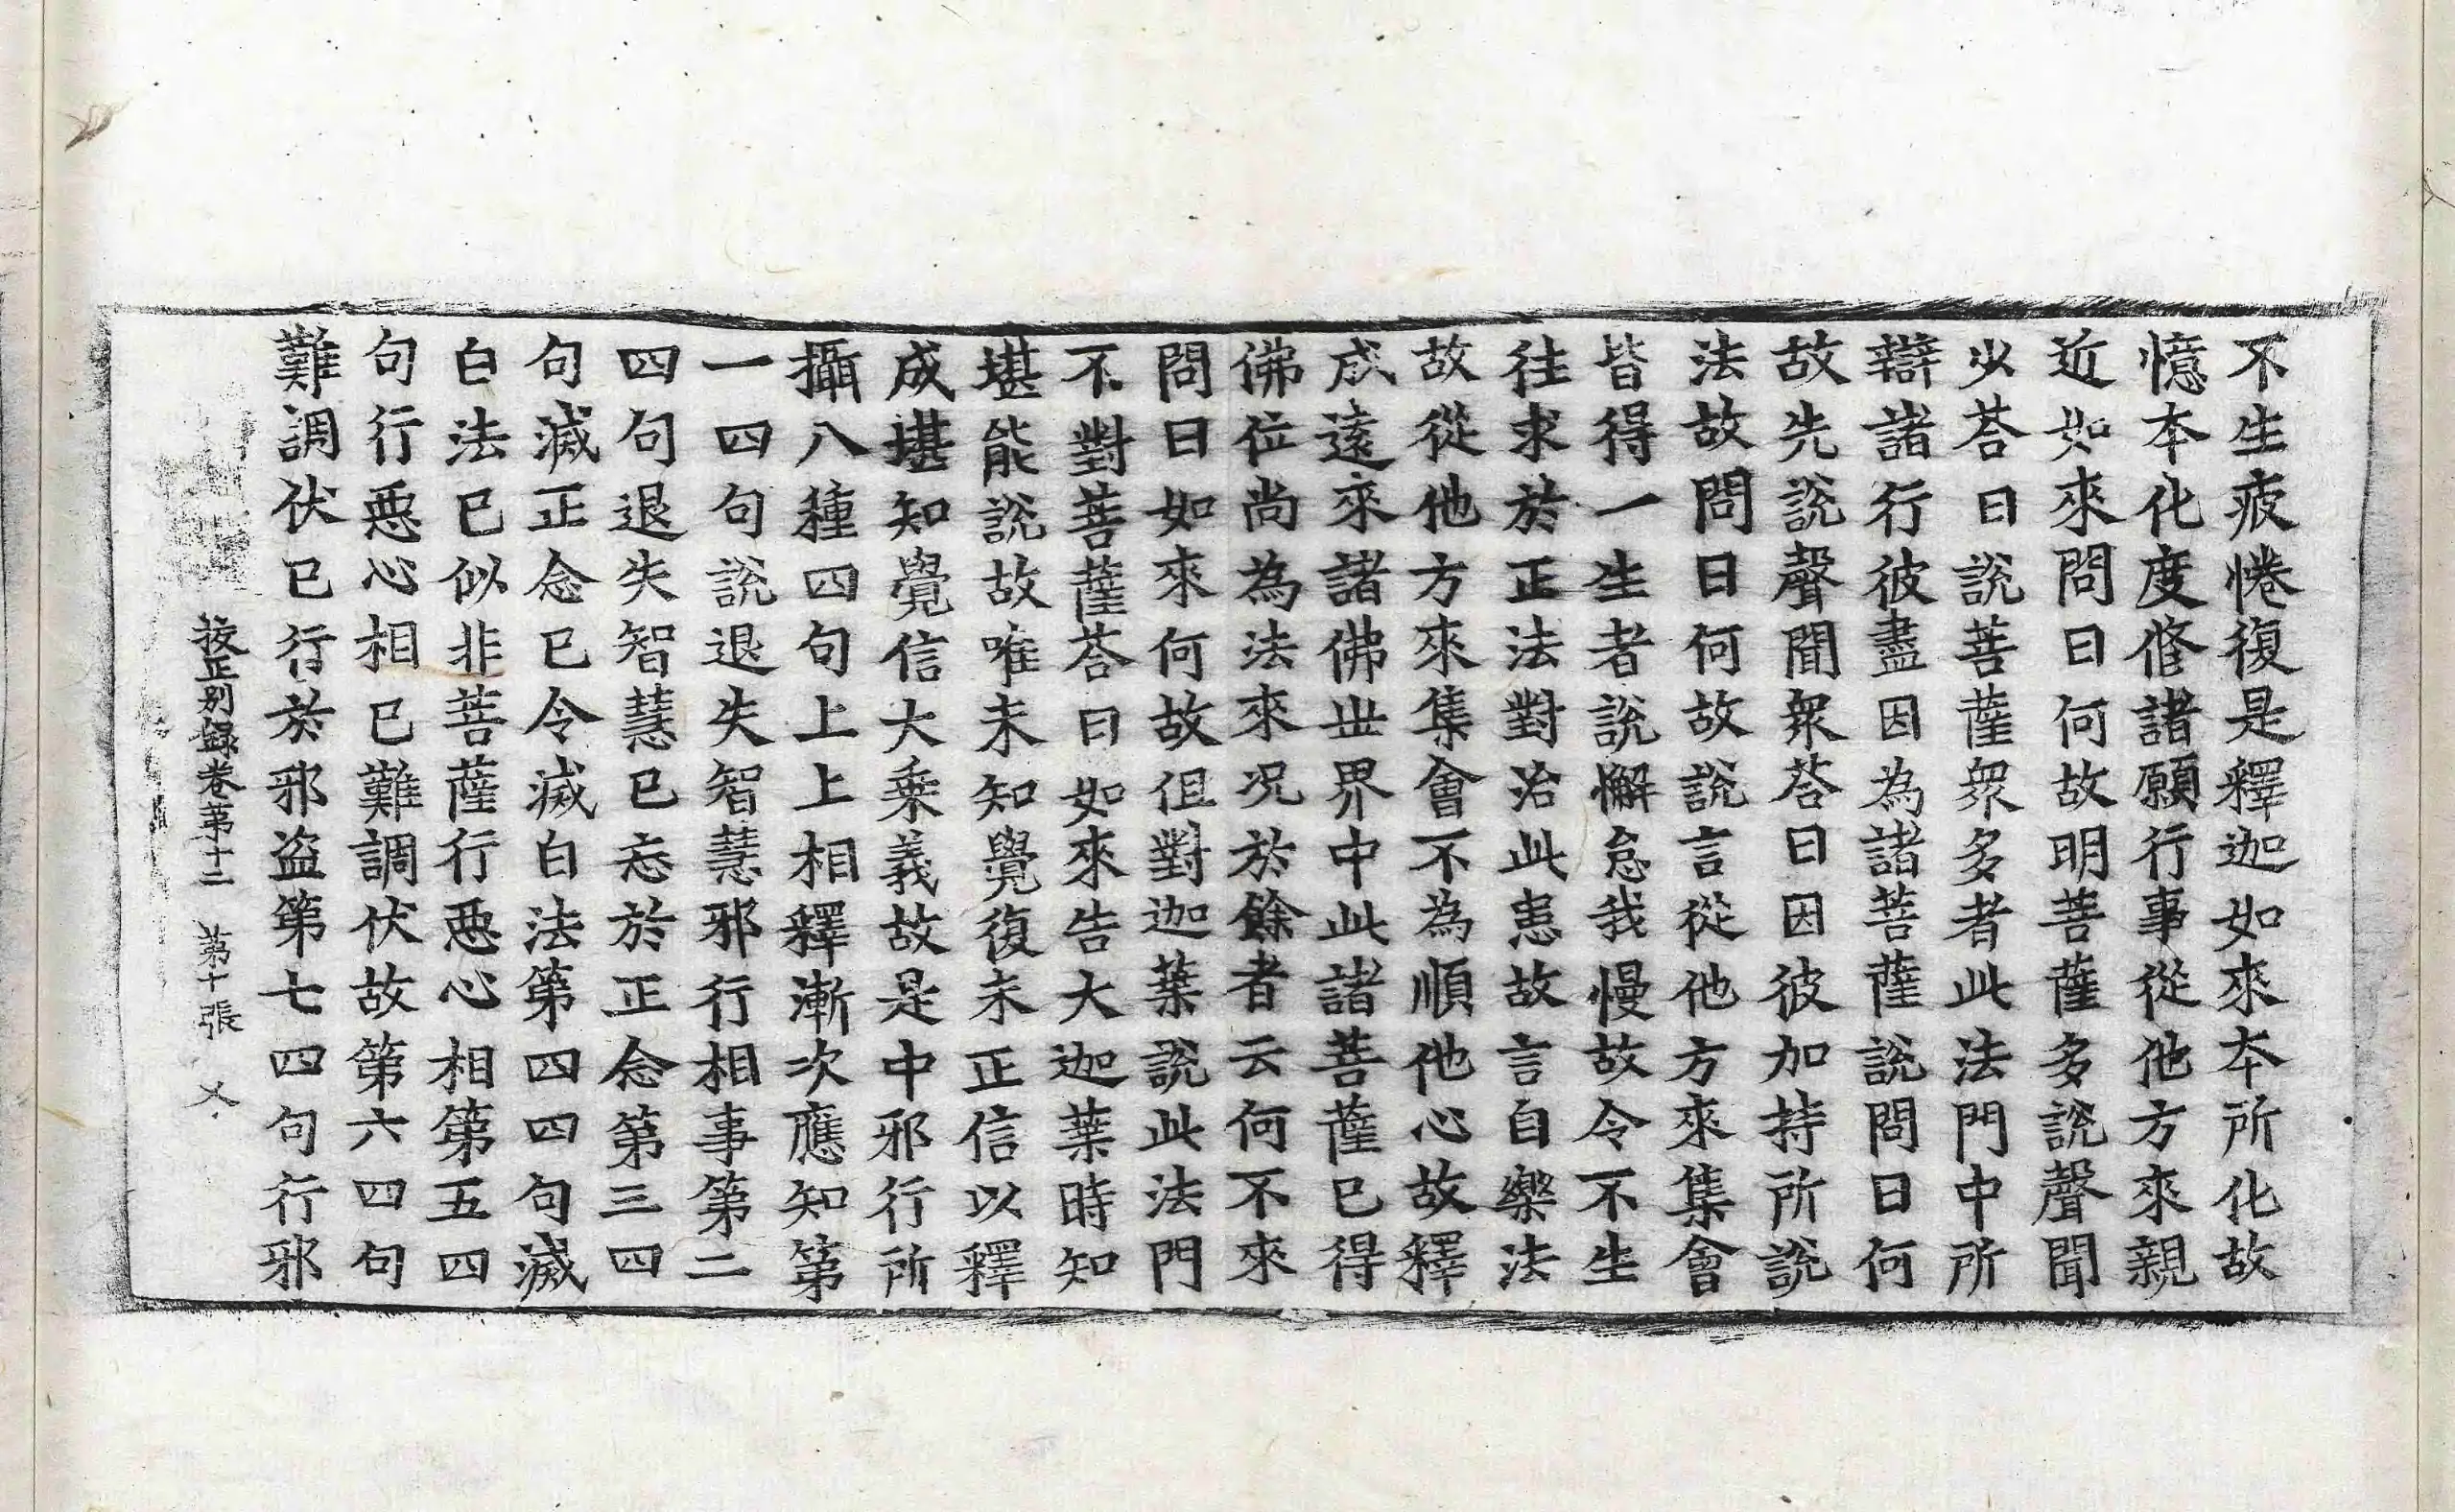 不生疲惓復是釋迦如來本所化故
憶本化度修諸願行事從他方來親
近如來問曰何故明菩薩多說聲聞
少荅曰說菩薩衆多者此法門中所
辯諸行彼盡因為諸菩薩說問曰何
故先說聲聞衆荅曰因彼加持所說
法故問曰何故說言從他方來集會
皆得一生者說懈怠我慢故令不生
往求於正法對治此恚故言自樂法
故從他方來集會不為順他心故釋
成遠來諸佛世界中此諸菩薩已得
佛位尚為法來況於餘者云何不來
問曰如來何故但對迦葉說此法門
不對菩薩荅曰如來告大迦葉時知
堪能說故唯未知覺復未正信以釋
成堪知覺信大乘義故是中邪行所
攝八種四句上上相釋漸次應知第
一四句說退失智慧邪行相事第二
四句退失智慧已忘於正念第三四
句滅正念已令滅白法第四四句滅
白法已似非菩薩行惡心相第五四
句行惡心相已難調伏故第六四句
難調伏已行於邪盜第七四句行邪
挍正别錄卷苐十二　苐十張　乂